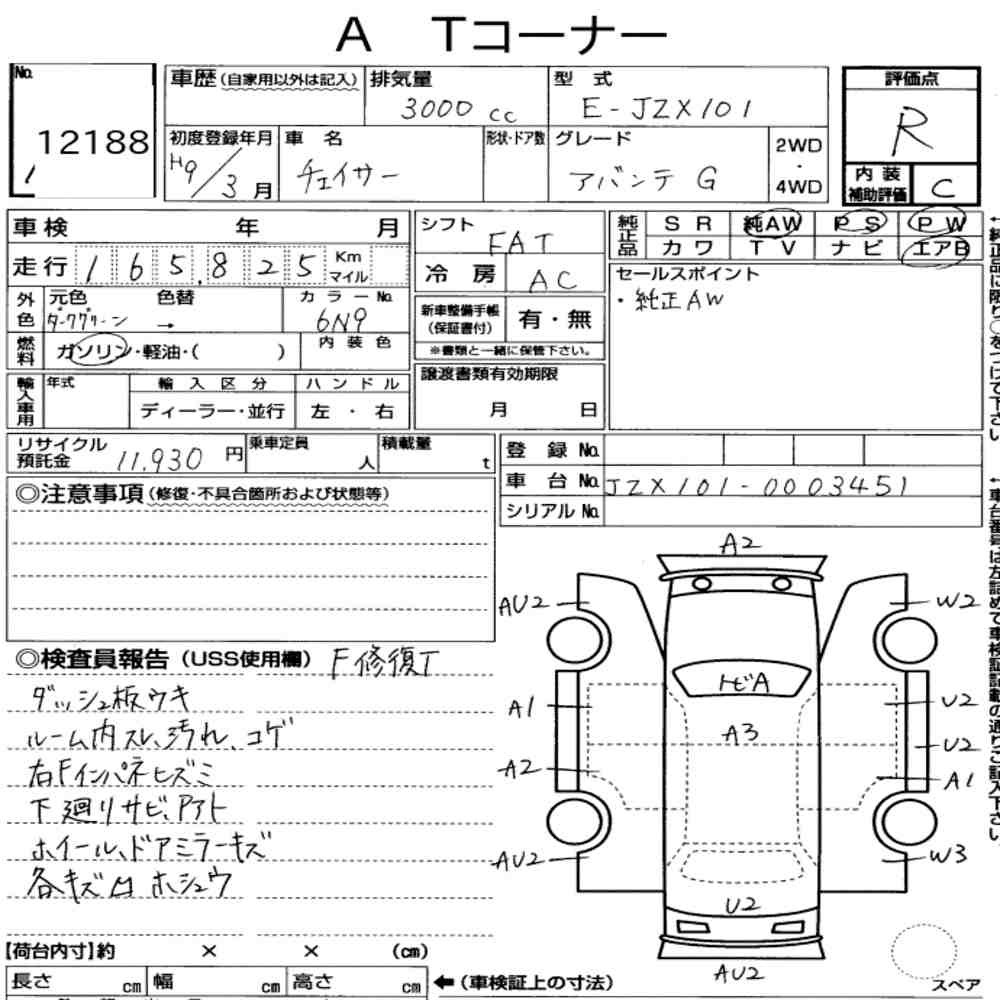 A Tコーナー
No.
12188
車歴(自家用以外は記入)
排気量
3000 cc
型式
E-JZX101
評価点
R
初度登録年月
H9/3月
車名
チェイサー
形状・ドア数
グレード
アバンテ G
2WD
・
4WD
内装
補助評価
C
車検 年 月
走行 165,825 Km マイル
外色
元色 色替 カラーNo.
ダークグリーン → 6N9
燃料
ガソリン・軽油・( )
内装色
輸入車用
年式
輸入区分
ハンドル
ディーラー・並行
左・右
シフト
FAT
冷房
AC
新車整備手帳
(保証書付)
有・無
※書類と一緒に保管下さい。
譲渡書類有効期限
月 日
純正品
SR 純AW PS PW
カワ TV ナビ エアB
セールスポイント
・純正AW
←純正品に限り○をつけて下さい
リサイクル
預託金
11,930円
乗車定員
人
積載量
t
登録No.
車台No.
JZX101-0003451
シリアルNo.
←車台番号は左詰めで車検証記載の通りご記入下さい。
◎注意事項(修復・不具合箇所および状態等)
◎検査員報告(USS使用欄) F修復T
ダッシュ板ウキ
ルーム内スレ、汚れ、コゲ
右Fインパネヒズミ
下廻りサビ、アト
ホイール、ドアミラーキズ
各キズ凹 ホシュウ
A2
AU2
W2
トビA
A1
U2
A3
U2
A2
A1
AU2
W3
U2
AU2
スペア
【荷台内寸】約 × × (cm)
長さ cm 幅 cm 高さ cm
←(車検証上の寸法)